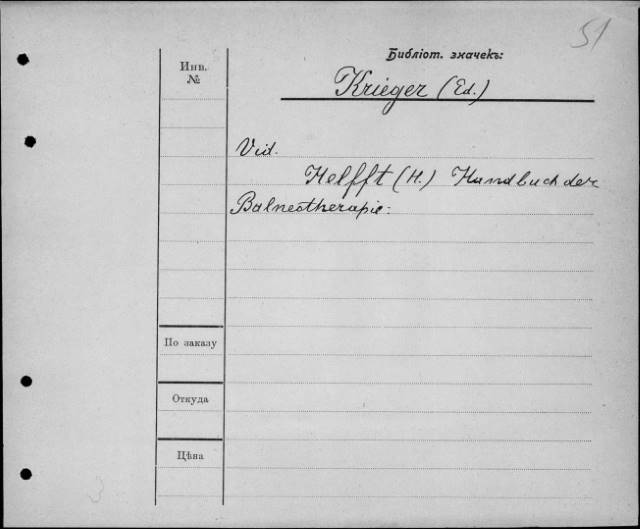 51
Библіот. значекъ:
Инв.
№
Krieger (Ed.)
Vid.
Helfft (H.) Handbuch der
Balneotherapie.
По заказу
Откуда
Цѣна
3